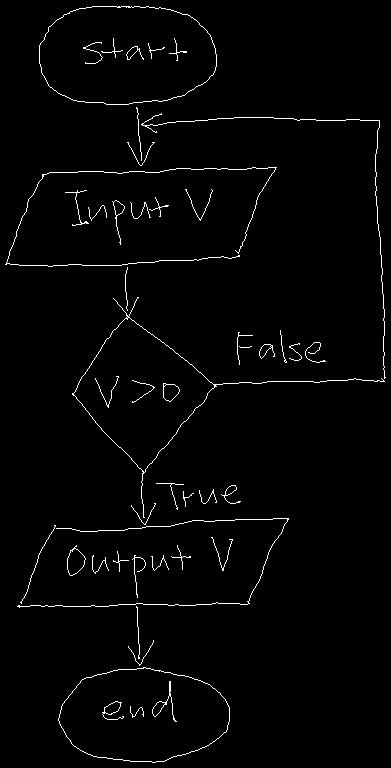 start
Input V
False
V>0
True
Output V
end